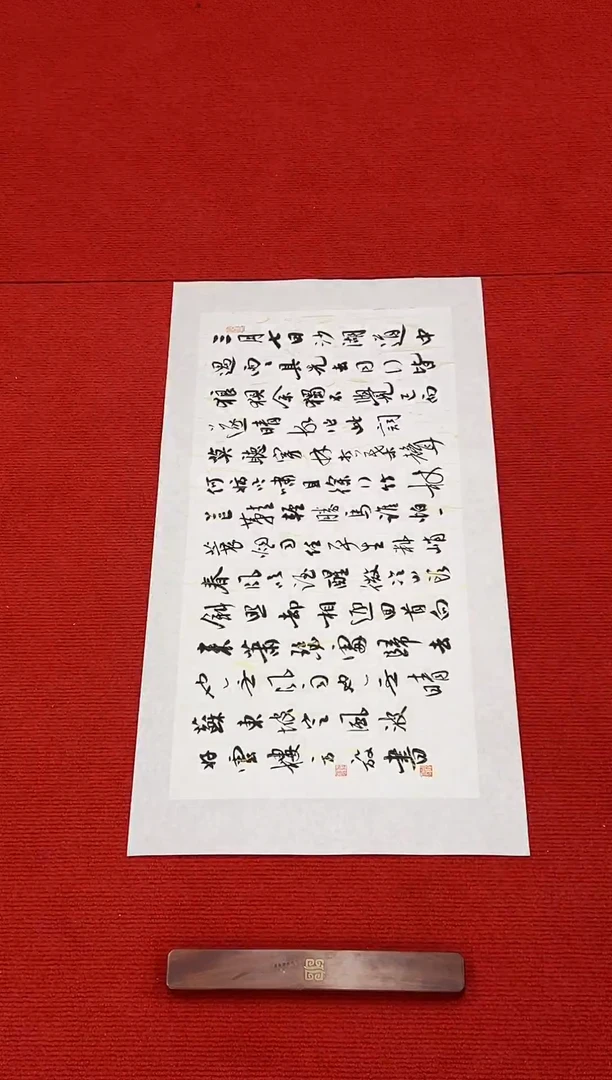 三月七日沙湖道中
遇雨〻具先去同行皆
狼狽余獨不覺已而
遂晴故作此詞
莫聽穿林打葉聲
何妨吟嘯且徐行竹杖
芒鞋輕勝馬誰怕一
蓑烟雨任平生料峭
春風吹酒醒微冷山頭
斜照却相迎回首向
來蕭瑟處歸去
也無風雨也無晴
蘇東坡定風波
好雲樓放書